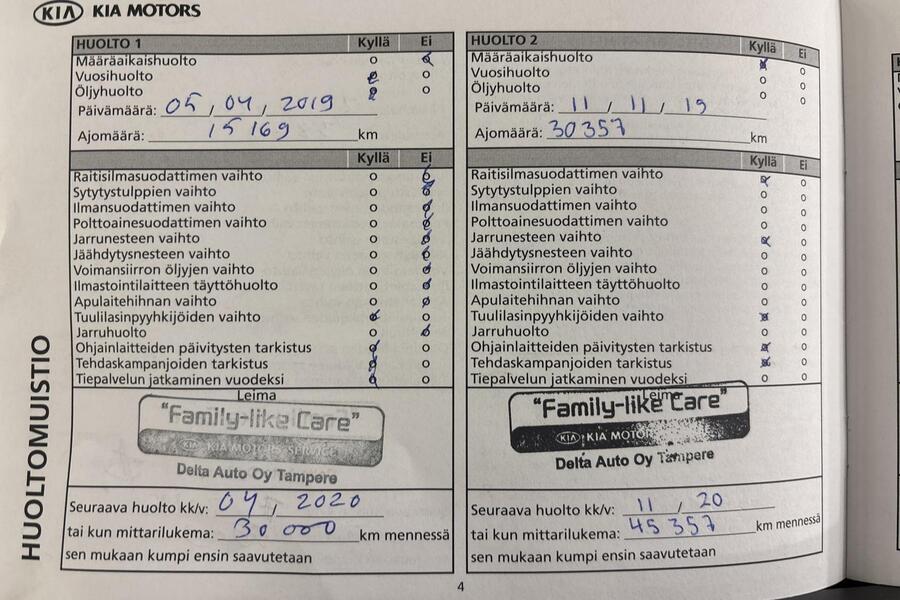 KIA KIA MOTORS
HUOLTO 1 Kyllä Ei
Määräaikaishuolto
Vuosihuolto
Öljyhuolto
Päivämäärä: 05 / 04 / 2019
Ajomäärä: 15 169 km
Kyllä Ei
Raitisilmasuodattimen vaihto
Sytytystulppien vaihto
Ilmansuodattimen vaihto
Polttoainesuodattimen vaihto
Jarrunesteen vaihto
Jäähdytysnesteen vaihto
Voimansiirron öljyjen vaihto
Ilmastointilaitteen täyttöhuolto
Apulaitehihnan vaihto
Tuulilasinpyyhkijöiden vaihto
Jarruhuolto
Ohjainlaitteiden päivitysten tarkistus
Tehdaskampanjoiden tarkistus
Tiepalvelun jatkaminen vuodeksi
Leima
"Family-like Care"
KIA KIA MOTORS SERVICE
Delta Auto Oy Tampere
Seuraava huolto kk/v: 04 / 2020
tai kun mittarilukema: 30 000 km mennessä
sen mukaan kumpi ensin saavutetaan
HUOLTO 2 Kyllä Ei
Määräaikaishuolto
Vuosihuolto
Öljyhuolto
Päivämäärä: 11 / 11 / 19
Ajomäärä: 30357 km
Kyllä Ei
Raitisilmasuodattimen vaihto
Sytytystulppien vaihto
Ilmansuodattimen vaihto
Polttoainesuodattimen vaihto
Jarrunesteen vaihto
Jäähdytysnesteen vaihto
Voimansiirron öljyjen vaihto
Ilmastointilaitteen täyttöhuolto
Apulaitehihnan vaihto
Tuulilasinpyyhkijöiden vaihto
Jarruhuolto
Ohjainlaitteiden päivitysten tarkistus
Tehdaskampanjoiden tarkistus
Tiepalvelun jatkaminen vuodeksi
Leima
"Family-like Care"
KIA KIA MOTO
Delta Auto Oy Tampere
Seuraava huolto kk/v: 11 / 20
tai kun mittarilukema: 45 357 km mennessä
sen mukaan kumpi ensin saavutetaan
HUOLTOMUISTIO
4